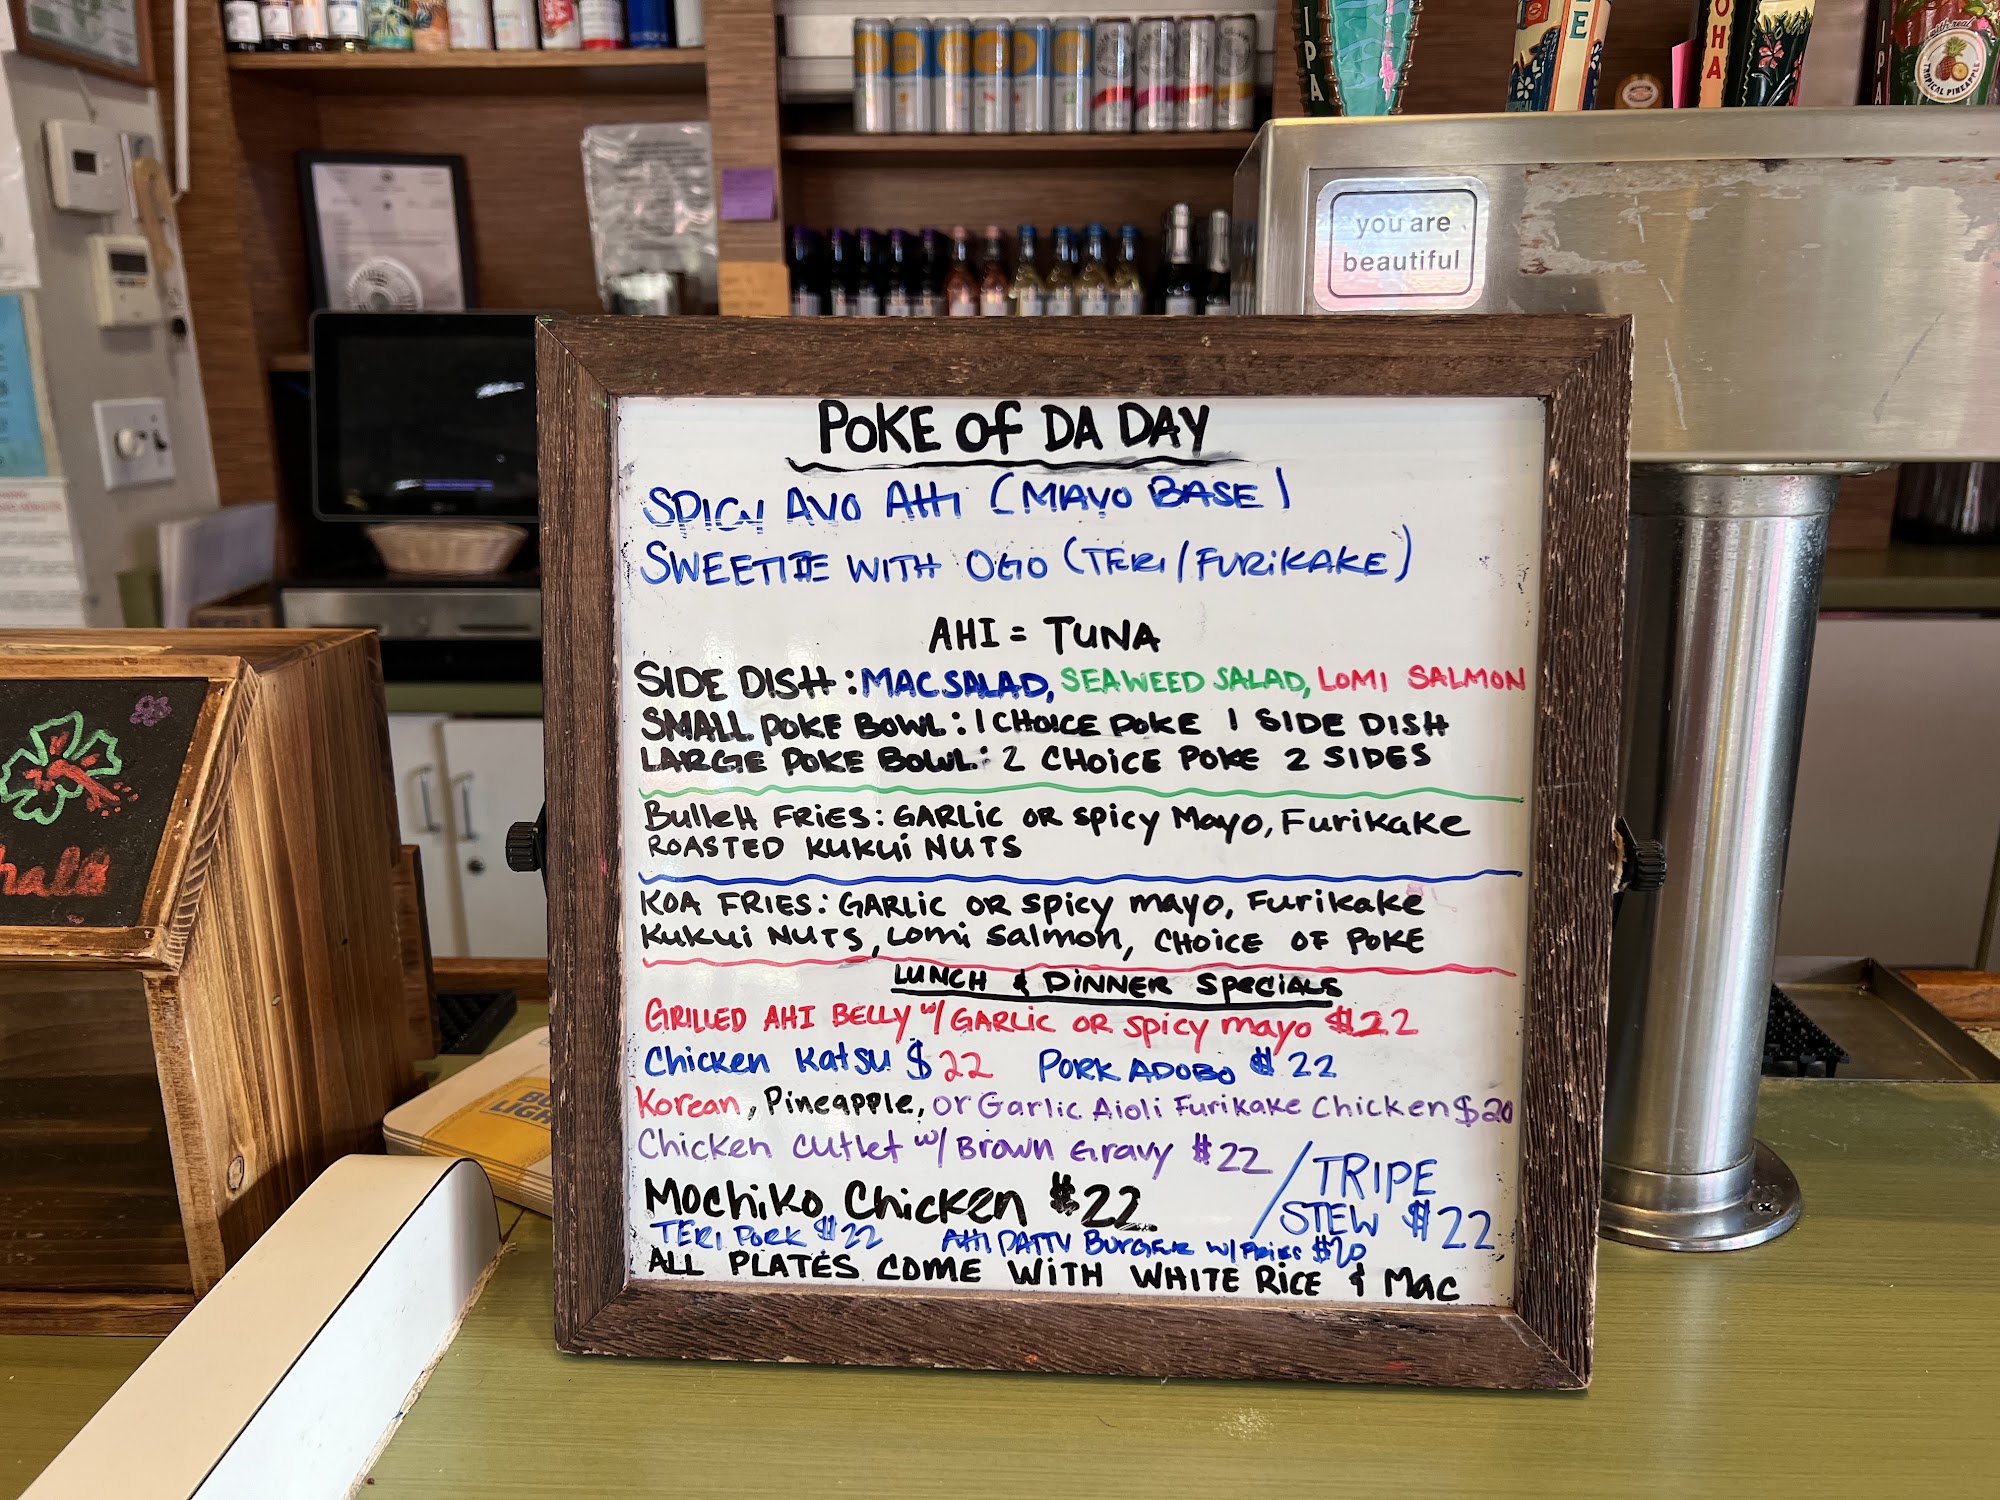 IPA
E
OHA
IPA
with real
TROPICAL PINEAPPLE
you are
beautiful
POKE OF DA DAY
SPICY AVO AHI (MAYO BASE)
SWEETIE WITH OGO (TERI/FURIKAKE)
AHI = TUNA
SIDE DISH: MAC SALAD, SEAWEED SALAD, LOMI SALMON
SMALL POKE BOWL: 1 CHOICE POKE 1 SIDE DISH
LARGE POKE BOWL: 2 CHOICE POKE 2 SIDES
BulleH FRiES: GARLIC OR spicy Mayo, Furikake
ROASTED KuKui NUTS
KOA FRIES: GARLIC OR spicy mayo, Furikake
Kukui NUTS, Lomi Salmon, CHOICE OF POKE
LUNCH & DINNER SPECIALS
GRILLED AHI BELLY w/ GARLIC OR spicy mayo $22
Chicken Katsu $22 PORK ADOBO $22
Korean, Pineapple, or Garlic Aioli Furikake Chicken $20
Chicken Cutlet w/ Brown Gravy $22 / TRIPE
STEW $22
Mochiko Chicken $22
TERI PORK $22 AHI PATTY BURGER w/ FRIES $20
ALL PLATES COME WITH WHITE RICE & MAC
halo
BUD
LIGHT